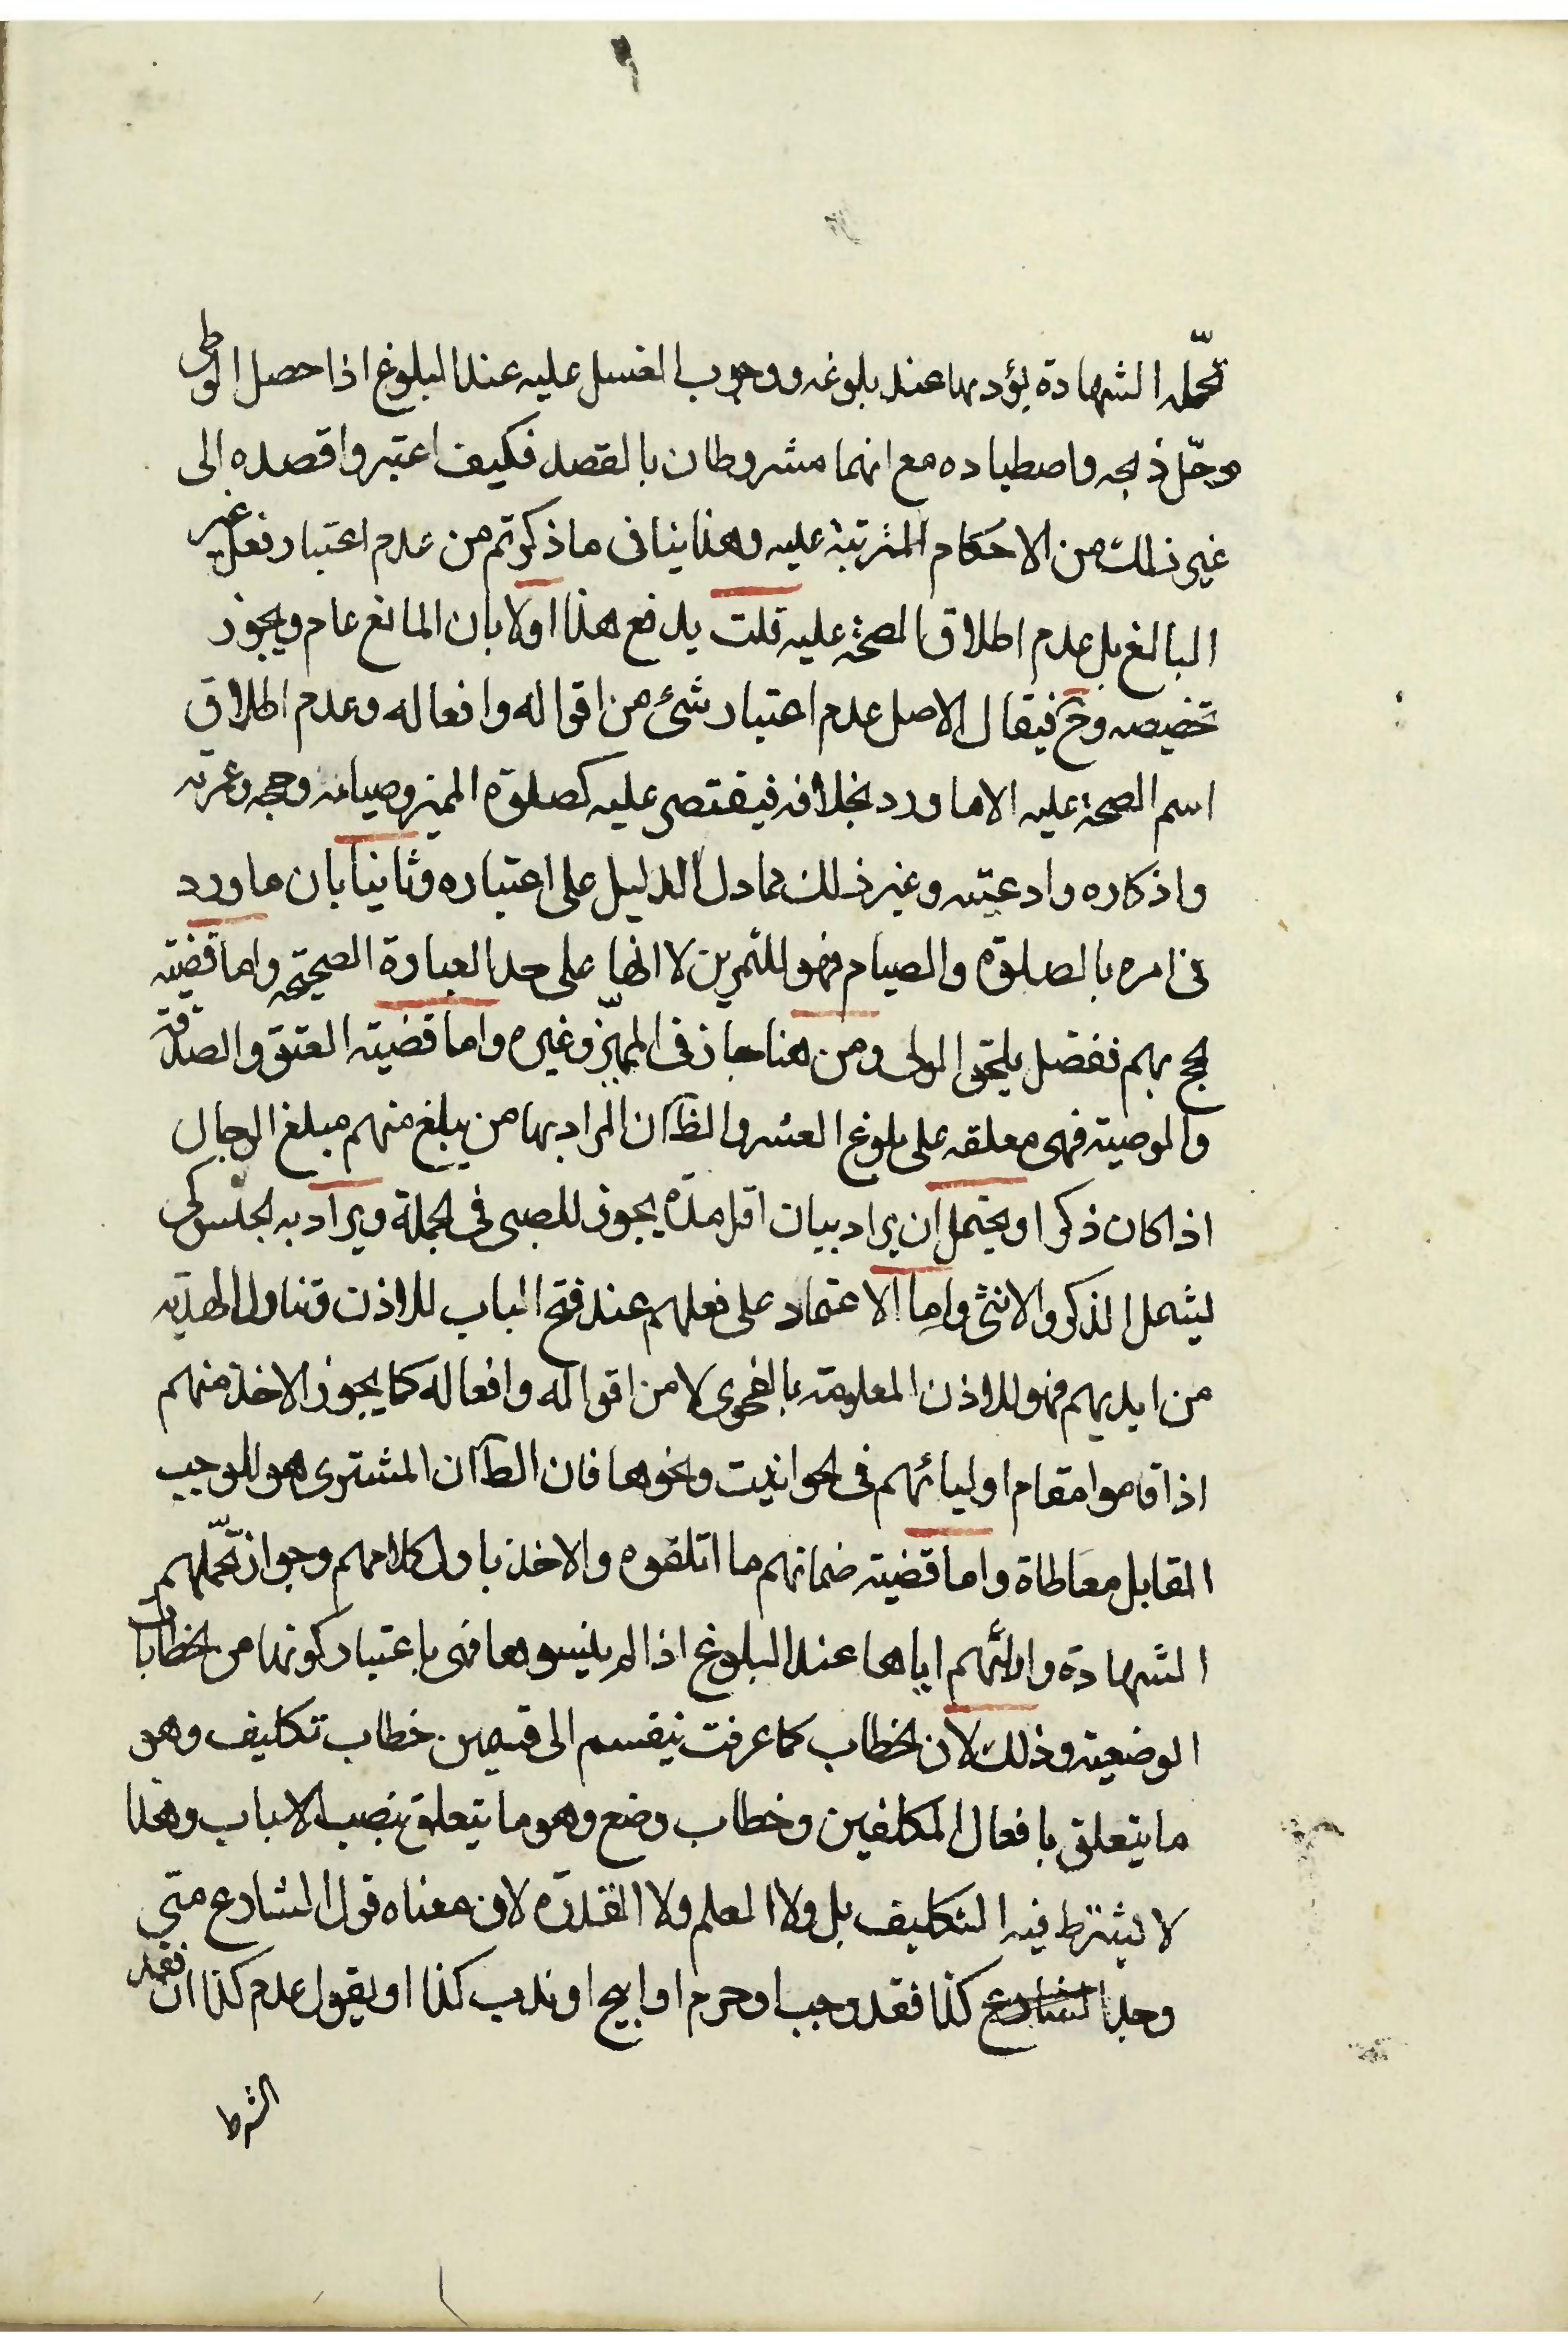 تحمّله الشهادة يؤديها عند بلوغه ووجوب الغسل عليه عند البلوغ اذا حصل الوطى
وحلّ ذبحه واصطياده مع انهما مشروطان بالقصد فكيف اعتبروا قصده الى
غير ذلك من الاحكام المترتبة عليه وهذا ينافى ما ذكرتم من عدم اعتبار فعل غير
البالغ بل عدم اطلاق الصحة عليه قلت يدفع هذا اولا بان المانع عام ويجوز
تخصيصه وح فيقال الاصل عدم اعتبار شئ من اقواله وافعاله وعدم اطلاق
اسم الصحة عليه الا ما ورد بخلافه فيقتصر عليه كصلوة المميز وصيامه وحجه وعمرته
واذكاره وادعيته وغير ذلك مما دل الدليل على اعتباره وثانيا بان ما ورد
فى امره بالصلوة والصيام فهو للتمرين لا انها على حد العبادة الصحيحة واما قضية
لحج بهم ففضل يلحق الولى ومن هنا جاز فى المميّز وغيره واما قضية العتق والصدقة
والوصية فهى معلقه على بلوغ العشر والظّ ان المراد بها من يبلغ منهم مبلغ الرجال
اذا كان ذكرا ويحتمل ان يراد بيان اقل مدّه يجوز للصبى فى لجملة ويراد به لجنس كى
ليشمل الذكر والانثى واما الاعتماد على فعلهم عند فتح الباب للاذن وتناول الهديّه
من ايديهم فهو للاذن المعلومة بالفحوى لا من اقواله وافعاله كما يجوز الاخذ منهم
اذا قاموا مقام اوليائهم فى لحوانيت ونحوها فان الظّ ان المشترى هو الموجب
القابل معاطاة واما قضية ضمانهم ما اتلفوه والاخذ باول كلامهم وجواز تحمّلهم
الشهادة وادائهم اياها عند البلوغ اذا لم ينسوها فهى باعتبار كونها من لخطابات
الوضعية وذلك لان لخطاب كما عرفت ينقسم الى قسمين خطاب تكليف وهو
ما يتعلق بافعال المكلفين وخطاب وضع وهو ما يتعلق بنصب الاسباب وهذا
لا يشترط فيه التكليف بل ولا العلم ولا القدرة لان معناه قول الشارع متى
وجد الشارع كذا فقد وجب او حرم او ابيح او ندب كذا او يقول عدم كذا ان فقد
الشرط